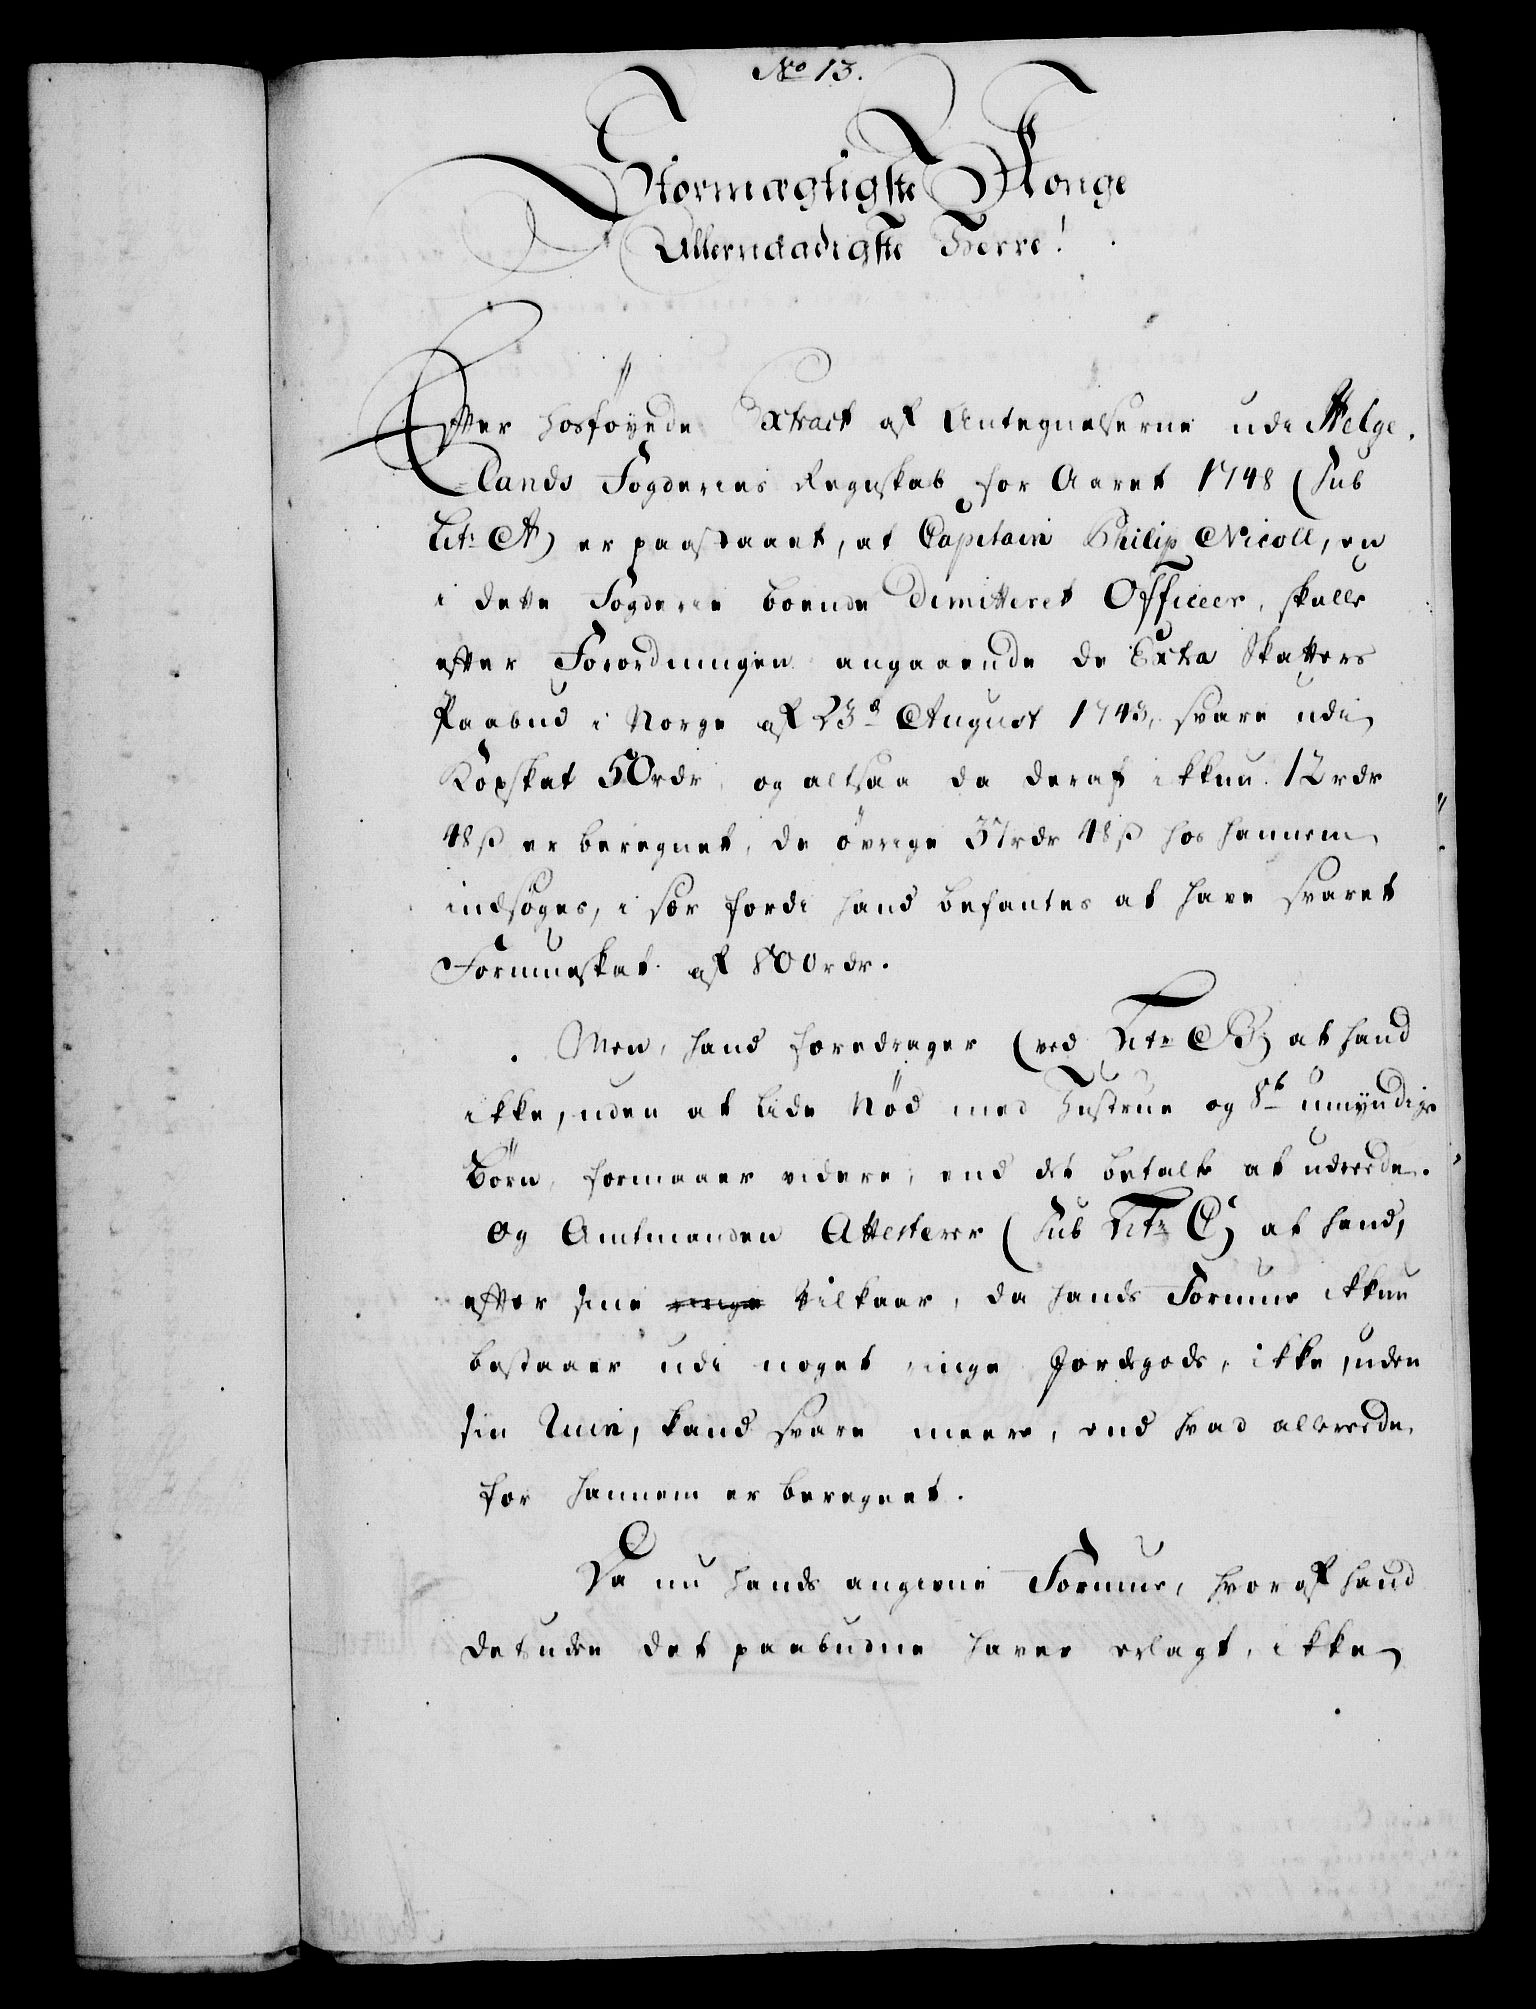 No 13.
Stormægtigste Konge
Allernaadigste Herre!
Efter hosföyede Extract af Antegnelserne udi Helge-
lands Fogderies Regnskab for Aaret 1748 (Sub
Litr A) er paastaaet, at Capitain Philip Nicoll, en
i dette Fogderie boende dimitteret Officeer, skulle
efter Forordningen angaaende de Extra Skatters
Paabud i Norge af 23d August 1743, svare udi
Kopskat 50 rdr, og altsaa da deraf ikkun 12 rdr
48 ß er beregnet, de övrige 37 rdr 48 ß hos hannem
indsöges, i sær fordi hand befantes at have svaret
Formueskat af 800 rdr.
Men, hand foredrager (ved Litr B) at hand
ikke, uden at lide Nöd med Hustrue og 8t umyndige
Börn, formaaer videre, end det betalte at udreede.
Og Amtmanden Attesterer (Sub Litr C) at hand,
efter sine ringe Vilkaar, da hands Formue ikkun
bestaaer udi noget ringe Jordegods, ikke, uden
sin Ruin, kand svare meere, end hvad allereede,
for hannem er beregnet.
Da nu hands angivne Formue, hvoraf hand
desuden det paabudne haver erlagt, ikke